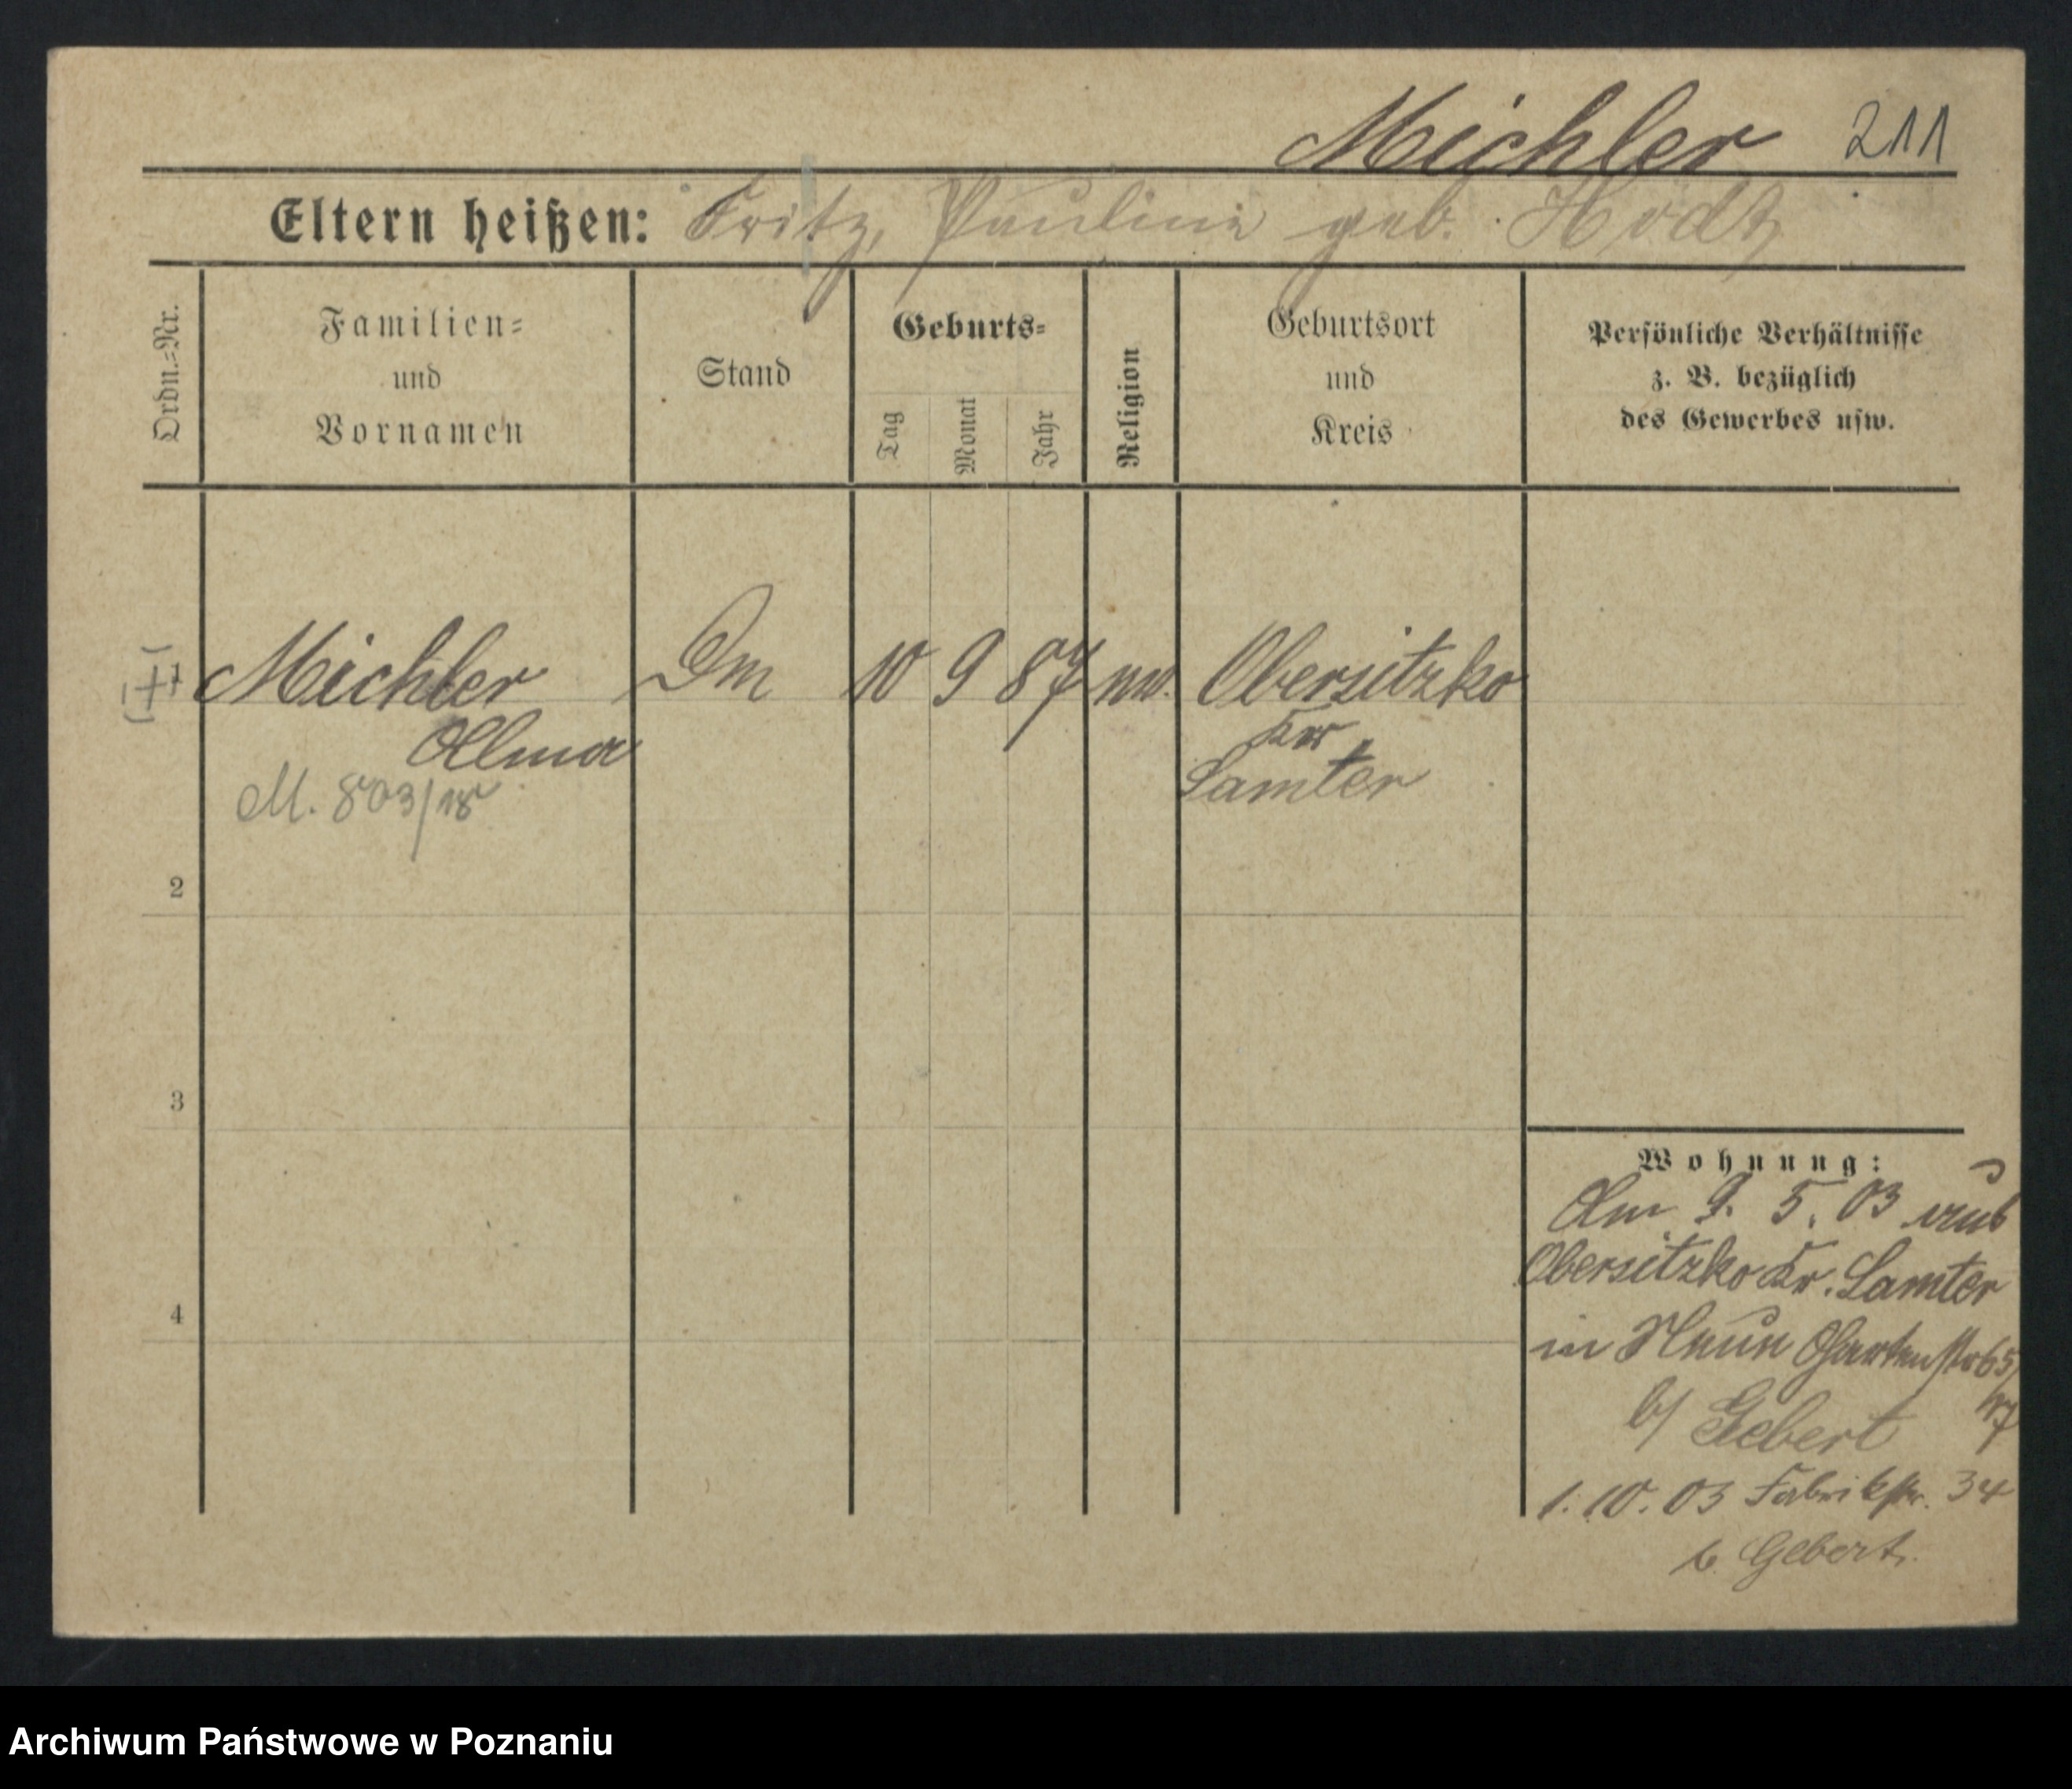 Michler 211
Eltern heißen: Fritz, Pauline geb. Hödt
Ordn.=Nr.
Familien=
und
Vornamen
Stand
Geburts=
Tag
Monat
Jahr
Religion
Geburtsort
und
Kreis
Persönliche Verhältnisse
z. B. bezüglich
des Gewerbes usw.
1 Michler 10 9 87 Obersitzko
Alma Kr
M. 803/18 Samter
2
3
4
Wohnung:
Am 9. 5. 03 aus
Obersitzko Kr. Samter
in Haus Gartenstr 65
b/ Gebert
1. 10. 03 Fabrikstr. 34
b. Gebert.
Archiwum Państwowe w Poznaniu